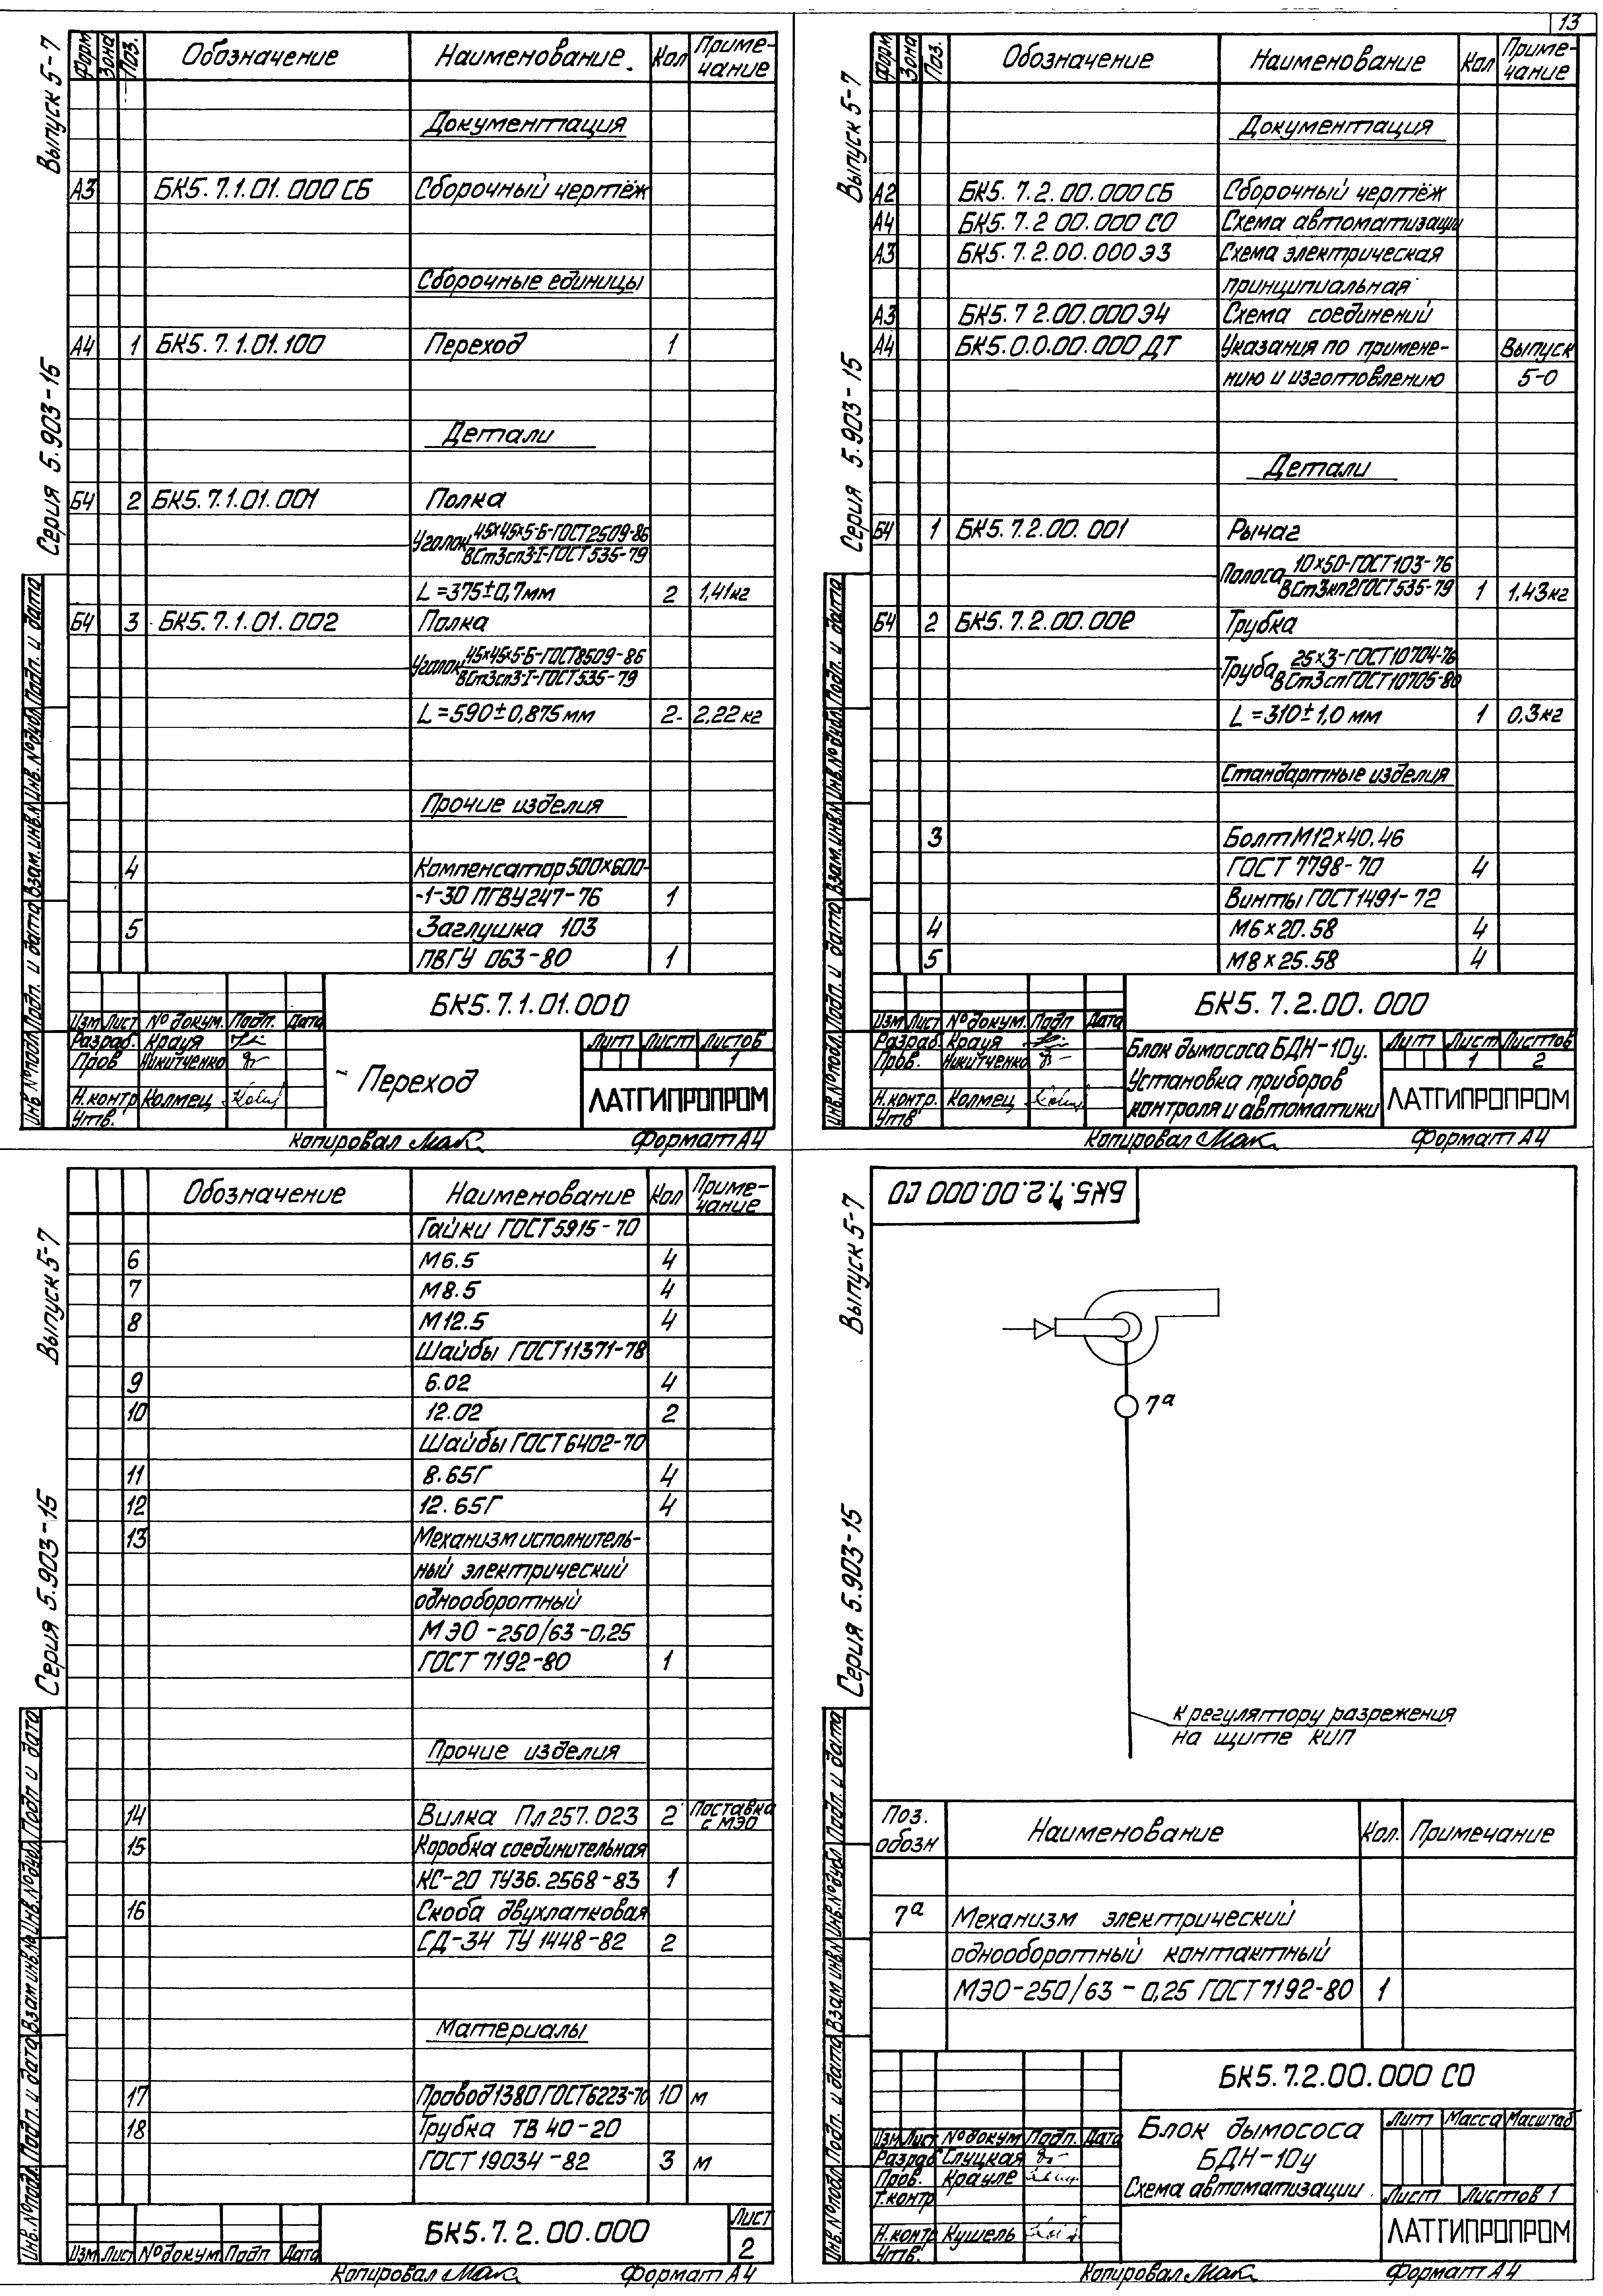 13
Выпуск 5-7
Серия 5.903-15
Форм Зона Поз. Обозначение Наименование. Кол Приме-
чание
Документация
А3 БК5.7.1.01.000 СБ Сборочный чертёж
Сборочные единицы
А4 1 БК5.7.1.01.100 Переход 1
Детали
Б4 2 БК5.7.1.01.001 Полка
Уголок 45х45х5-Б-ГОСТ2509-86
ВСт3сп3-I-ГОСТ535-79
L=375±0,7мм 2 1,41кг
Б4 3 БК5.7.1.01.002 Полка
Уголок 45х45х5-Б-ГОСТ8509-86
ВСт3сп3-I-ГОСТ535-79
L=590±0,875мм 2 2,22кг
Прочие изделия
4 Компенсатор 500х600-
-1-30 ПГВУ247-76 1
5 Заглушка 103
ПВГУ 063-80 1
БК5.7.1.01.000
Изм Лист № докум. Подп. Дата
Разраб. Крауя
Пров Никитченко
Н.контр Колмец
Утв.
Переход
Лит Лист Листов
1
ЛАТГИПРОПРОМ
Инв.№подл. Подп. и дата Взам.инв.№ Инв.№дубл. Подп. и дата
Копировал Мак Формат А4
Выпуск 5-7
Серия 5.903-15
Форм Зона Поз. Обозначение Наименование Кол Приме-
чание
Документация
А2 БК5.7.2.00.000 СБ Сборочный чертёж
А4 БК5.7.2 00.000 СО Схема автоматизации
А3 БК5.7.2.00.000Э3 Схема электрическая
принципиальная
А3 БК5.7 2.00.000Э4 Схема соединений
А4 БК5.0.0.00.000 ДТ Указания по примене- Выпуск
нию и изготовлению 5-0
Детали
Б4 1 БК5.7.2.00.001 Рычаг
Полоса 10х50-ГОСТ103-76
ВСт3кп2ГОСТ535-79 1 1,43кг
Б4 2 БК5.7.2.00.002 Трубка
Труба 25х3-ГОСТ10704-76
ВСт3спГОСТ10705-80
L=310±1,0 мм 1 0,3кг
Стандартные изделия
3 Болт М12х40.46
ГОСТ 7798-70 4
Винты ГОСТ1491-72
4 М6х20.58 4
5 М8х25.58 4
БК5.7.2.00.000
Изм Лист № докум. Подп Дата
Разраб. Крауя
Пров. Никитченко
Н.контр. Колмец
Утв
Блок дымососа БДН-10у.
Установка приборов
контроля и автоматики
Лит Лист Листов
1 2
ЛАТГИПРОПРОМ
Инв.№подл. Подп. и дата Взам.инв.№ Инв.№дубл. Подп. и дата
Копировал Мак Формат А4
Выпуск 5-7
Серия 5.903-15
Обозначение Наименование Кол Приме-
чание
Гайки ГОСТ5915-70
6 М6.5 4
7 М8.5 4
8 М12.5 4
Шайбы ГОСТ11371-78
9 6.02 4
10 12.02 2
Шайбы ГОСТ6402-70
11 8.65Г 4
12 12.65Г 4
13 Механизм исполнитель-
ный электрический
однооборотный
МЭО-250/63-0,25
ГОСТ 7192-80 1
Прочие изделия
14 Вилка Пл257.023 2 Поставка
с МЭО
15 Коробка соединительная
КС-20 ТУ36.2568-83 1
16 Скоба двухлапковая
СД-34 ТУ 1448-82 2
Материалы
17 Провод1380 ГОСТ6223-70 10 м
18 Трубка ТВ 40-20
ГОСТ 19034-82 3 м
БК5.7.2.00.000
Лист
2
Изм Лист № докум. Подп Дата
Инв.№подл. Подп. и дата Взам инв.№ Инв.№дубл. Подп и дата
Копировал Мак Формат А4
Выпуск 5-7
Серия 5.903-15
БК5.7.2.00.000 СО
7а
К регулятору разрежения
на щите КИП
Поз.
обозн Наименование Кол. Примечание
7а Механизм электрический
однооборотный контактный
МЭО-250/63-0,25 ГОСТ 7192-80 1
БК5.7.2.00.000 СО
Изм Лист № докум Подп. Дата
Разраб Слуцкая
Пров. Крауле
Т.контр
Н.контр Кушель
Утв.
Блок дымососа
БДН-10у
Схема автоматизации.
Лит Масса Масштаб
Лист Листов 1
ЛАТГИПРОПРОМ
Инв.№подл. Подп. и дата Взам инв.№ Инв.№дубл Подп. и дата
Копировал Мак Формат А4